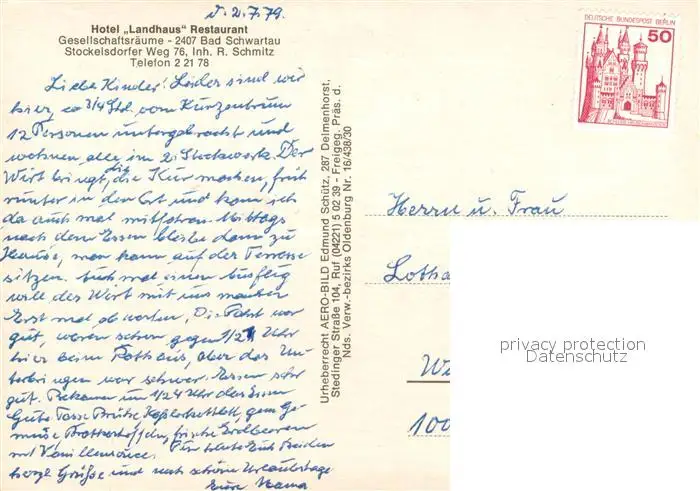 d. 2.7.79.
Hotel „Landhaus" Restaurant
Gesellschaftsräume - 2407 Bad Schwartau
Stockelsdorfer Weg 76, Inh. R. Schmitz
Telefon 2 21 78
Liebe Kinder! Leider sind wir
hier, ca 3/4 Std. vom Kurzentrum
12 Personen untergebracht und
wohnen alle im 2. Stockwerk. Der
Wirt bringt, die Kur machen, früh
runter in den Ort und kann ich
da auch mal mitfahren. Mittags
nach dem Essen bleibe dann zu
Hause, man kann auf der Terrasse
sitzen. Auch mal einen Ausflug
will der Wirt mit uns machen
Erst mal abwarten. Die Fahrt war
gut, waren schon gegen 1/2 1 Uhr
hier beim Rathaus, aber das Un-
terbringen war schwer. Essen sehr
gut. Bekamen um 1/2 4 Uhr das Essen
Gute Tasse Brühe gem. Ge-
müse frische Erdbeeren
mit Vanillensauce. Euch Beiden
herzl. Grüße und noch schöne Urlaubstage
Eure Mama
Urheberrecht AERO-BILD Edmund Schütz, 287 Delmenhorst,
Stedinger Straße 104, Ruf (04221) 5 02 39 - Freigeg. Präs. d.
Nds. Verw.-bezirks Oldenburg Nr. 16/438/30
DEUTSCHE BUNDESPOST BERLIN
50
Herrn u. Frau
Lotha
W
100
privacy protection
Datenschutz